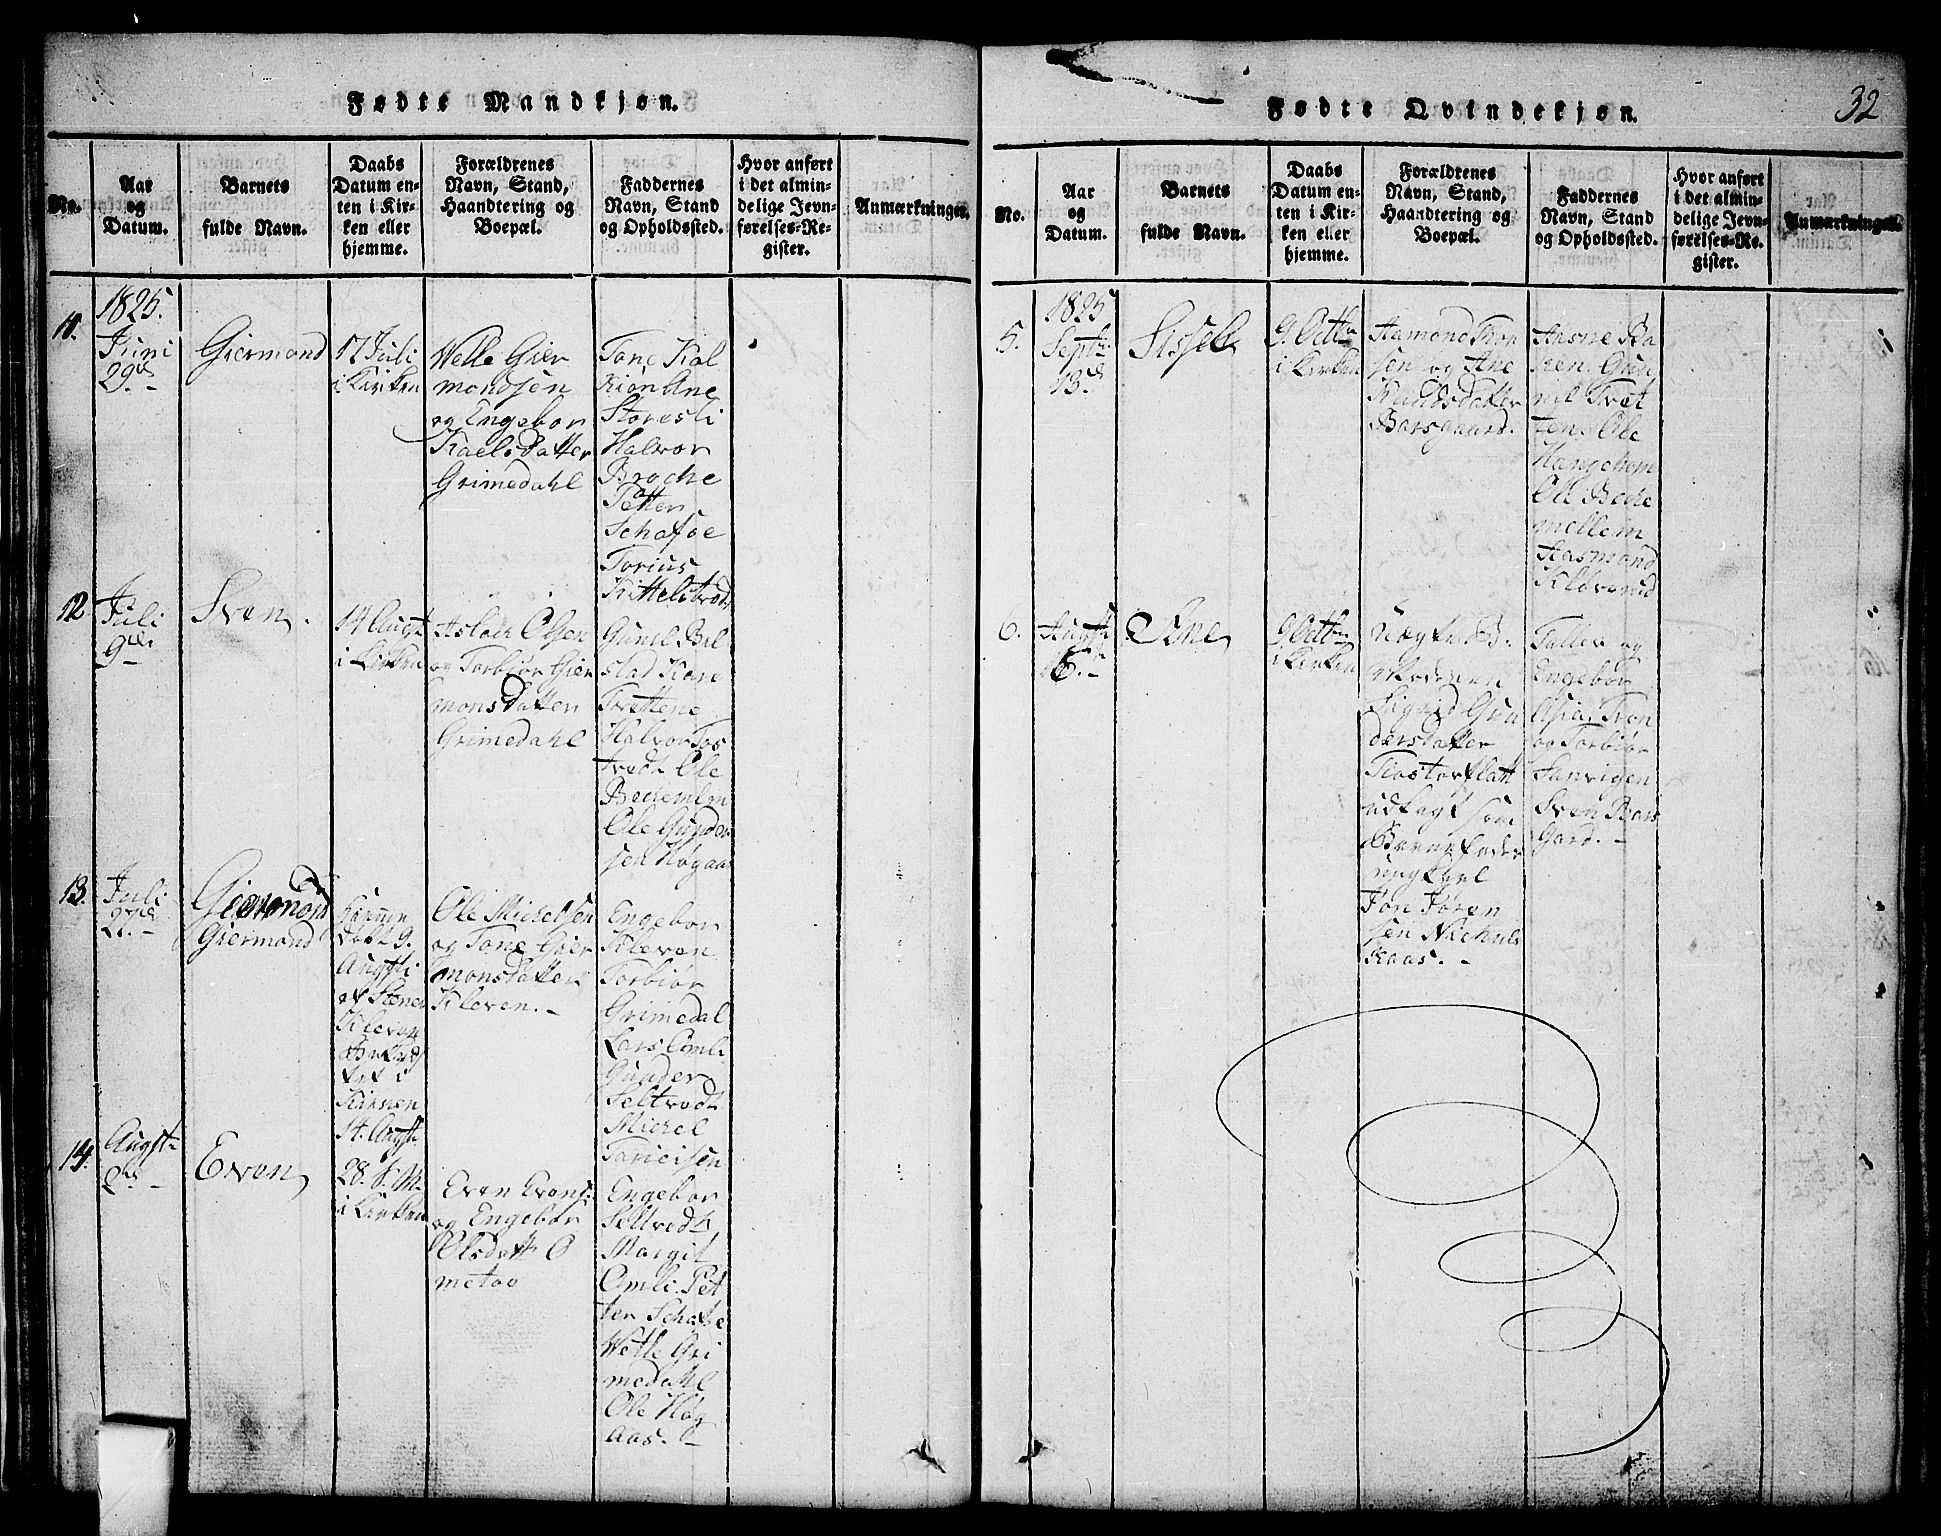 Fødte Mandkjøn.
No.
Aar
og
Datum.
Barnets
fulde Navn.
Daabs
Datum en-
ten i Kir-
ken eller
hjemme.
Forældrenes
Navn, Stand,
Haandtering og
Boepæl.
Faddernes
Navn, Stand
og Opholdssted.
Hvor anført
i det almin-
delige Jevn-
førelses-Re-
gister.
Anmærkninger.
11.
1825.
Juni
29de
Giermond
17 Juli
i Kirken
Welle Gier
mondsen
og Engebor
Kaelsdatter
Grimedahl
Tone Kal
Kion Ane
Storesli
Halvor
Broche
Petter
Schafsøe
Torius
Kittelstrødt
12.
Juli
9de
Sven
14 Augst
i Kirken
Aslach Olsen
og Torbiør Gier
monsdatter
Grimedahl
Gunil Bel
stad Kare
Trættene
Halvor Tos
trødt Ole
Bechemlm
Ole Gunder
sen Høgaas
13.
Juli
27de
Giermond
Giermond
døbt 9.
Augsti
af Stener
Kleven
i
Kirken
14. Augst
Ole Michelsen
og Tone Gier
monsdatter
Kleven.
Engebor
Kleven
Torbiør
Grimedal
Lars Omli
Gunder
Seltrødt
Michel
Taricisen
14.
Augst
2de
Even
28. S. M.
i Kirken
Even Evens:
og Engebor
Olsdatt O
metao
Engebor
Seltrødt
Margit
Omli. Pet
ter Schafse
Welle Gri
medahl
Ole Høg
aas.
Fødte Qvindekjøn.
32
No.
Aar
og
Datum.
Barnets
fulde Navn.
Daabs
Datum en-
ten i Kir-
ken eller
hjemme.
Forældrenes
Navn, Stand,
Haandtering og
Boepæl.
Faddernes
Navn, Stand
og Opholdssted.
Hvor anført
i det almin-
delige Jevn-
førelses-Re-
gister.
Anmærkninger.
5.
1825
Septbr
13de
Sissel
9. Octbr
i Kirken
Aamond Tron
sen og Ane
Knudsdatter
Barsgaard.
Aasne Ba
ken. Gun
nil Tret
ten. Ole
Haugehom
Ole Beche
mellem
Aasmond
Kløverud
6.
Augst
16.
Ane
9. Octbr
i Kirken
Uægte B:
Moderen
Sigrid Gun
dersdatter
Klosterflatt
udlagt som
Barnefader
ungkarl
Jon Jøren
sen Nichuls
Kaas.
Taller og
Engebor
Asia, Tron
og Torbiør
Sanvigen
Sven Bars
Gard.